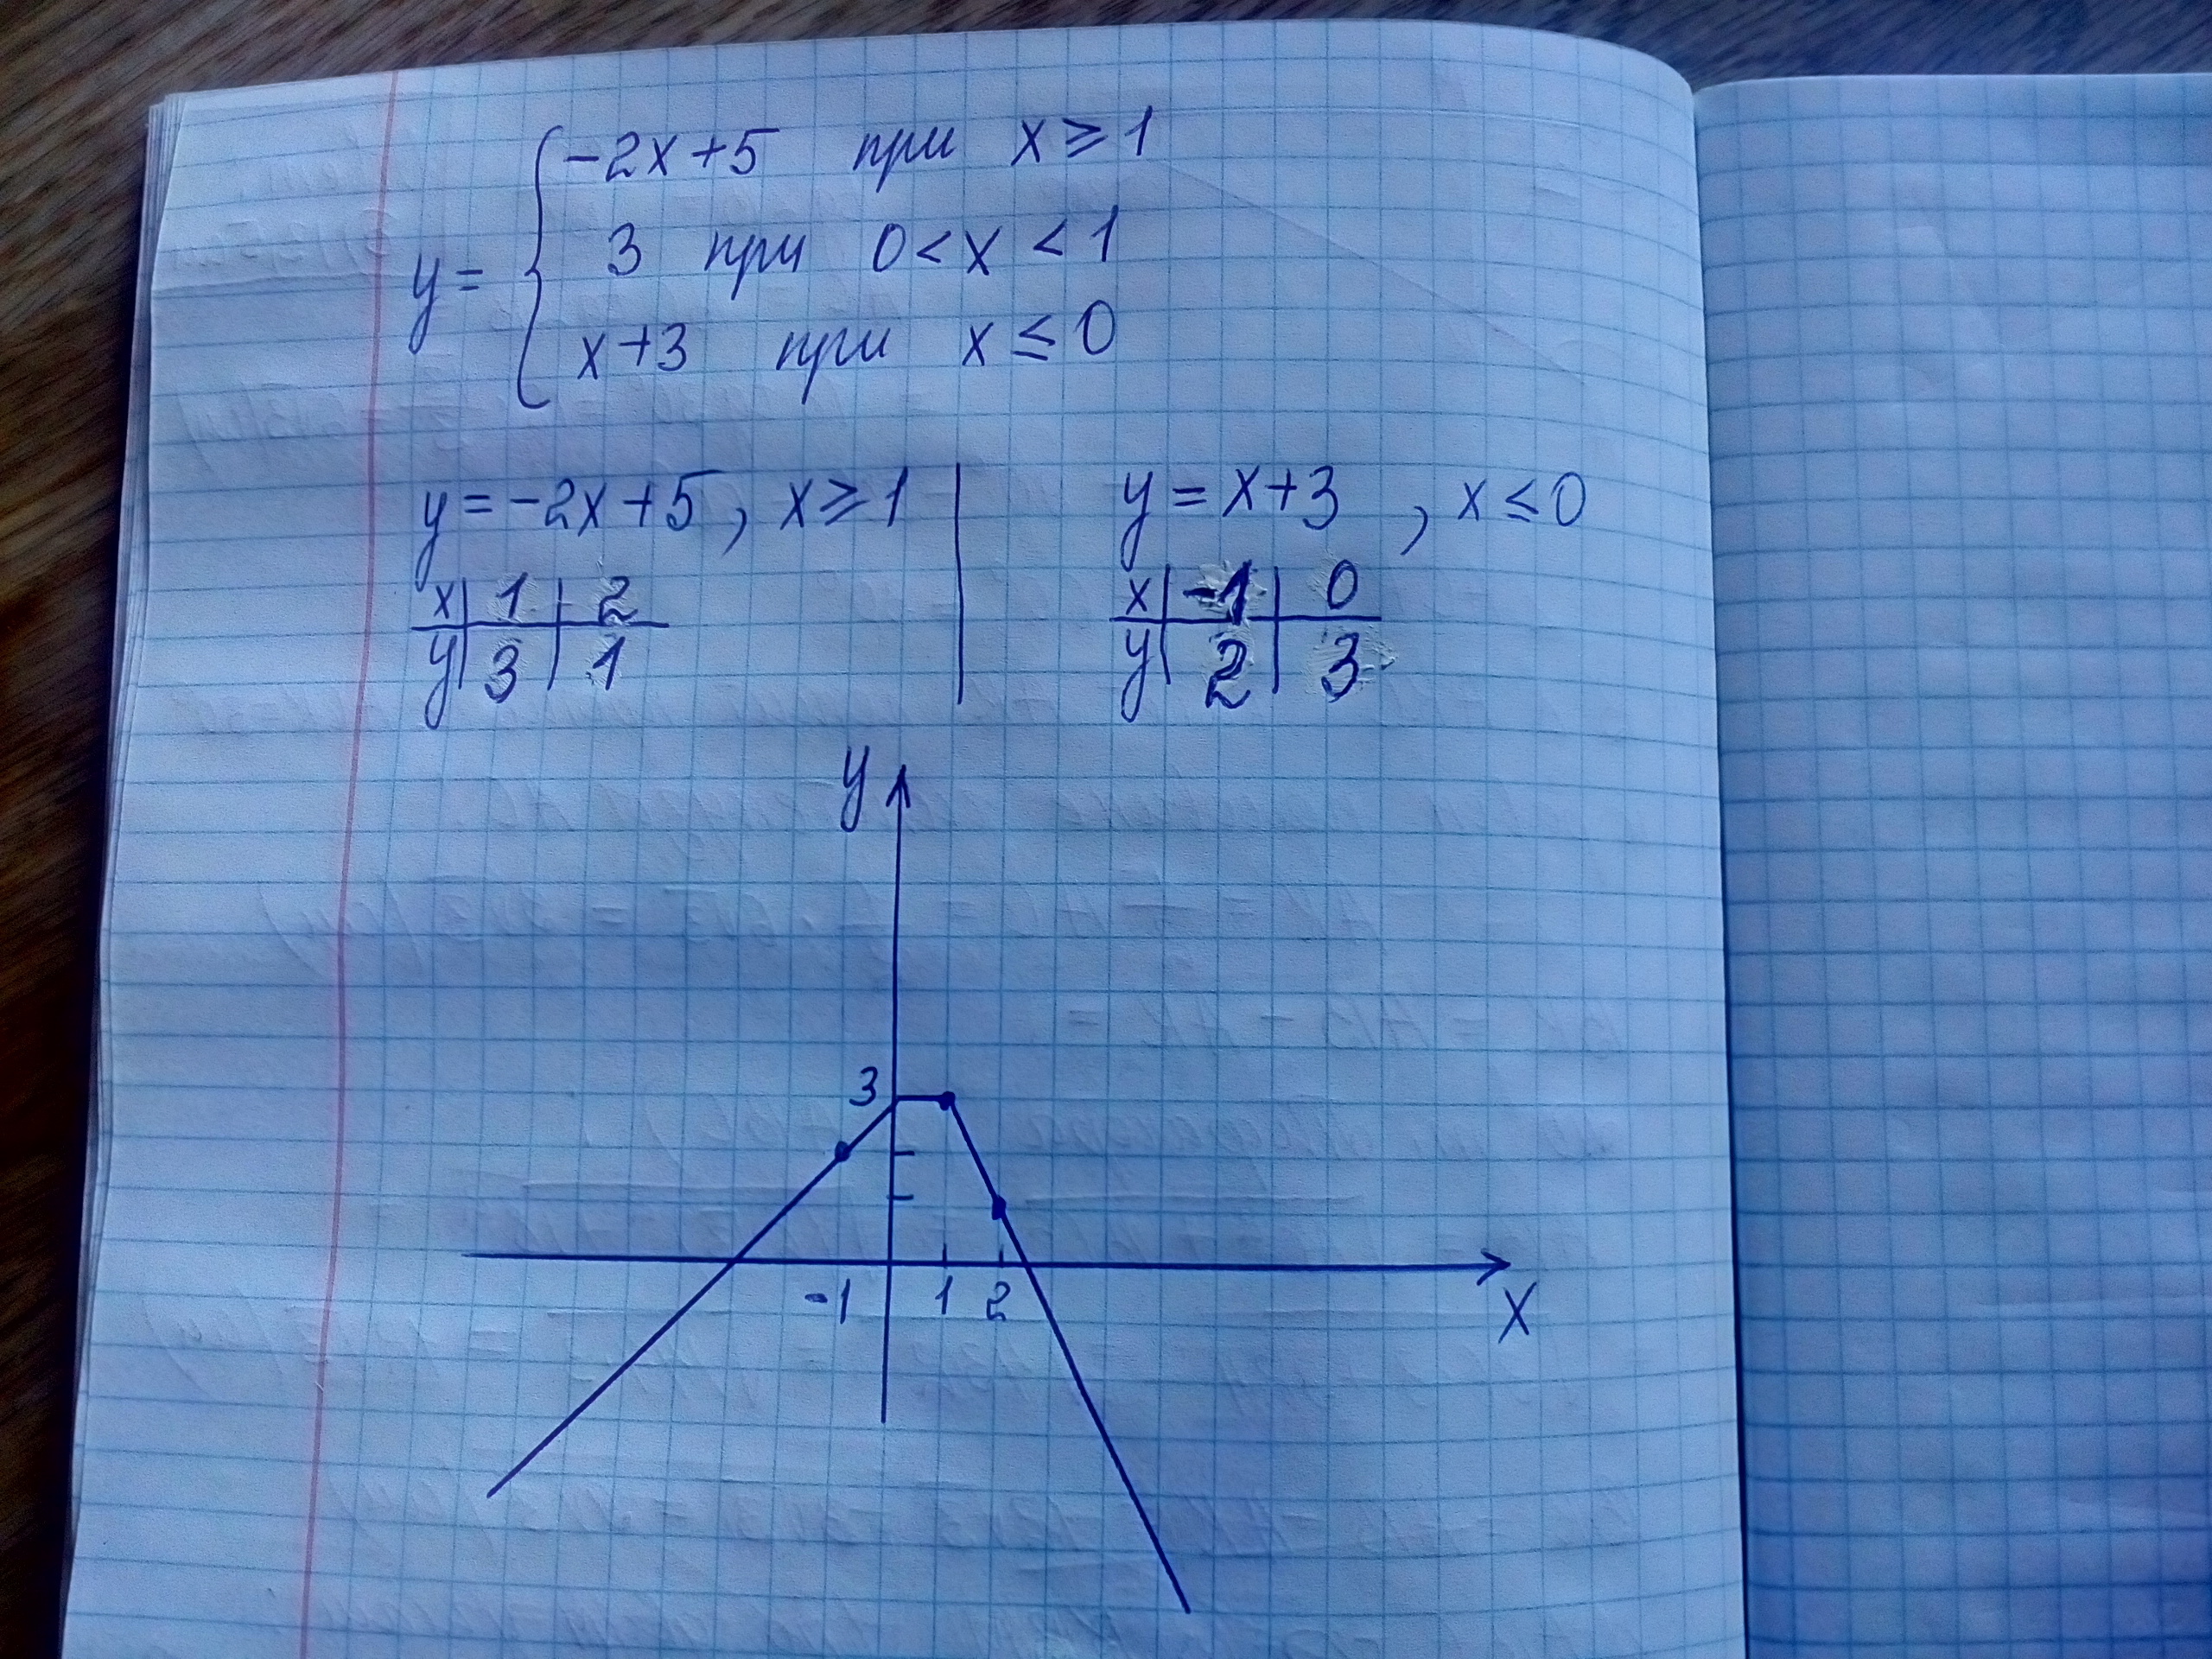 y = { -2x+5 при x ≥ 1
3 при 0 < x < 1
x+3 при x ≤ 0
y = -2x+5, x ≥ 1 | y = x+3 , x ≤ 0
x | 1 | 2
y | 3 | 1
x | -1 | 0
y | 2 | 3
y
3
-1 1 2
x